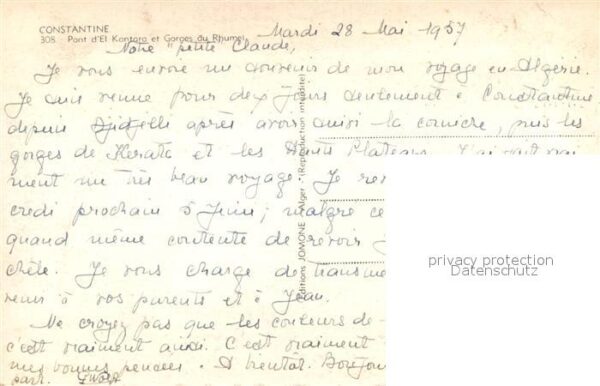 CONSTANTINE
308. Pont d'El Kantara et Gorges du Rhumel
Mardi 28 Mai 1957
Notre petite Claude,
Je vous envoie un souvenir de mon voyage en Algérie.
Je suis venue pour deux jours seulement à Constantine
depuis Djidjelli après avoir suivi la corniche, puis les
gorges de Kerata et les Hauts Plateaux. J'ai fait vrai
ment un très beau voyage. Je
credi prochain 5 Juin; malgré ce
quand même contente de revoir
Je vous charge de transme
à vos parents et à Jean.
Ne croyez pas que les couleurs de
c'est vraiment ainsi. C'est vraiment
mes bonnes pensées. A bientôt. Bonjour
part.
Editions JOMONE - Alger - (Reproduction interdite)
privacy protection
Datenschutz